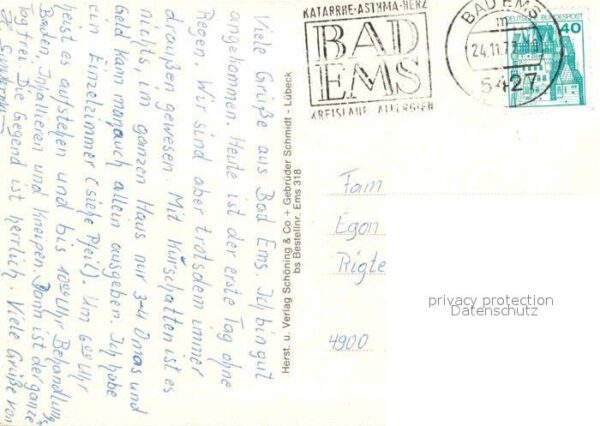 Viele Grüße aus Bad Ems. Ich bin gut
angekommen. Heute ist der erste Tag ohne
Regen. Wir sind aber trotsdem immer
draußen gewesen. Mit Kurschatten ist es
nichts, im ganzen Haus nur 3-4 Omas und
Geld kann man auch allein ausgeben. Ich habe
ein Einzelzimmer (siehe Pfeil). Um 6 00 Uhr
heist es aufstehen und bis 10 00 Uhr Behandlung,
Baden, Inhalieren und Kneipen. Dann ist der ganze
Tag frei. Die Gegend ist herrlich. Viele Grüße von
Herst. u. Verlag Schöning & Co + Gebrüder Schmidt - Lübeck
bs Bestellnr. Ems 318
KATARRHE-ASTHMA-HERZ
BAD
EMS
KREISLAUF-ALLERGIEN
BAD EMS
m
24.11.7
5427
DEUTSCHE BUNDESPOST
40
Fam
Egon
Rigte
4900
privacy protection
Datenschutz